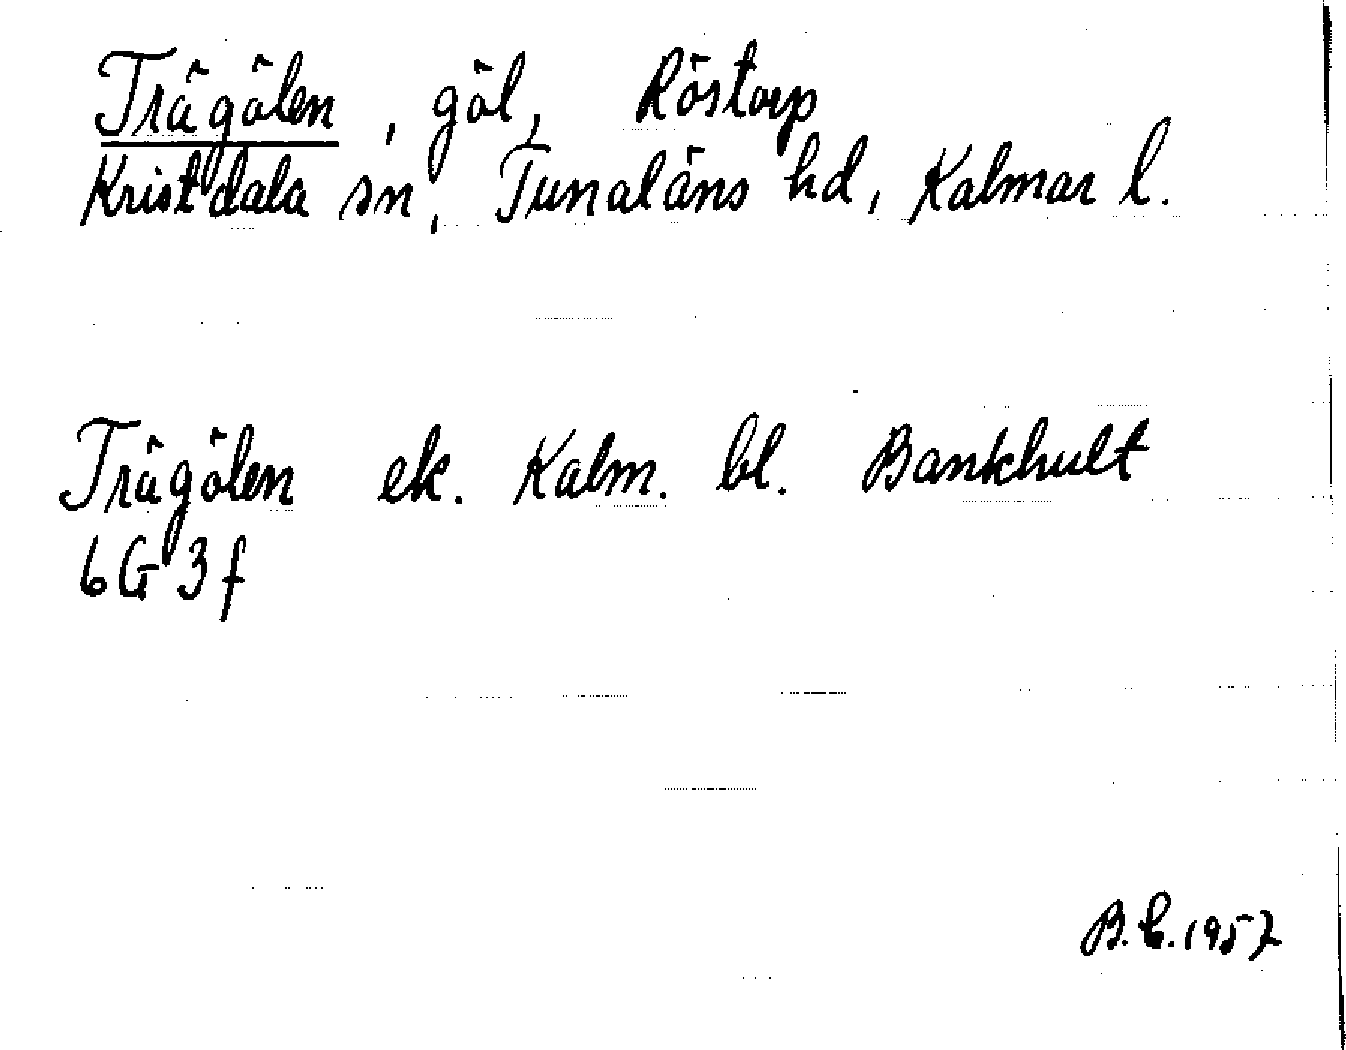 Trägölen, göl, Röstorp
Kristdala sn, Tunaläns hd, Kalmar l.
Trägölen ek. Kalm. bl. Bankhult
6G 3f
B. E. 1957